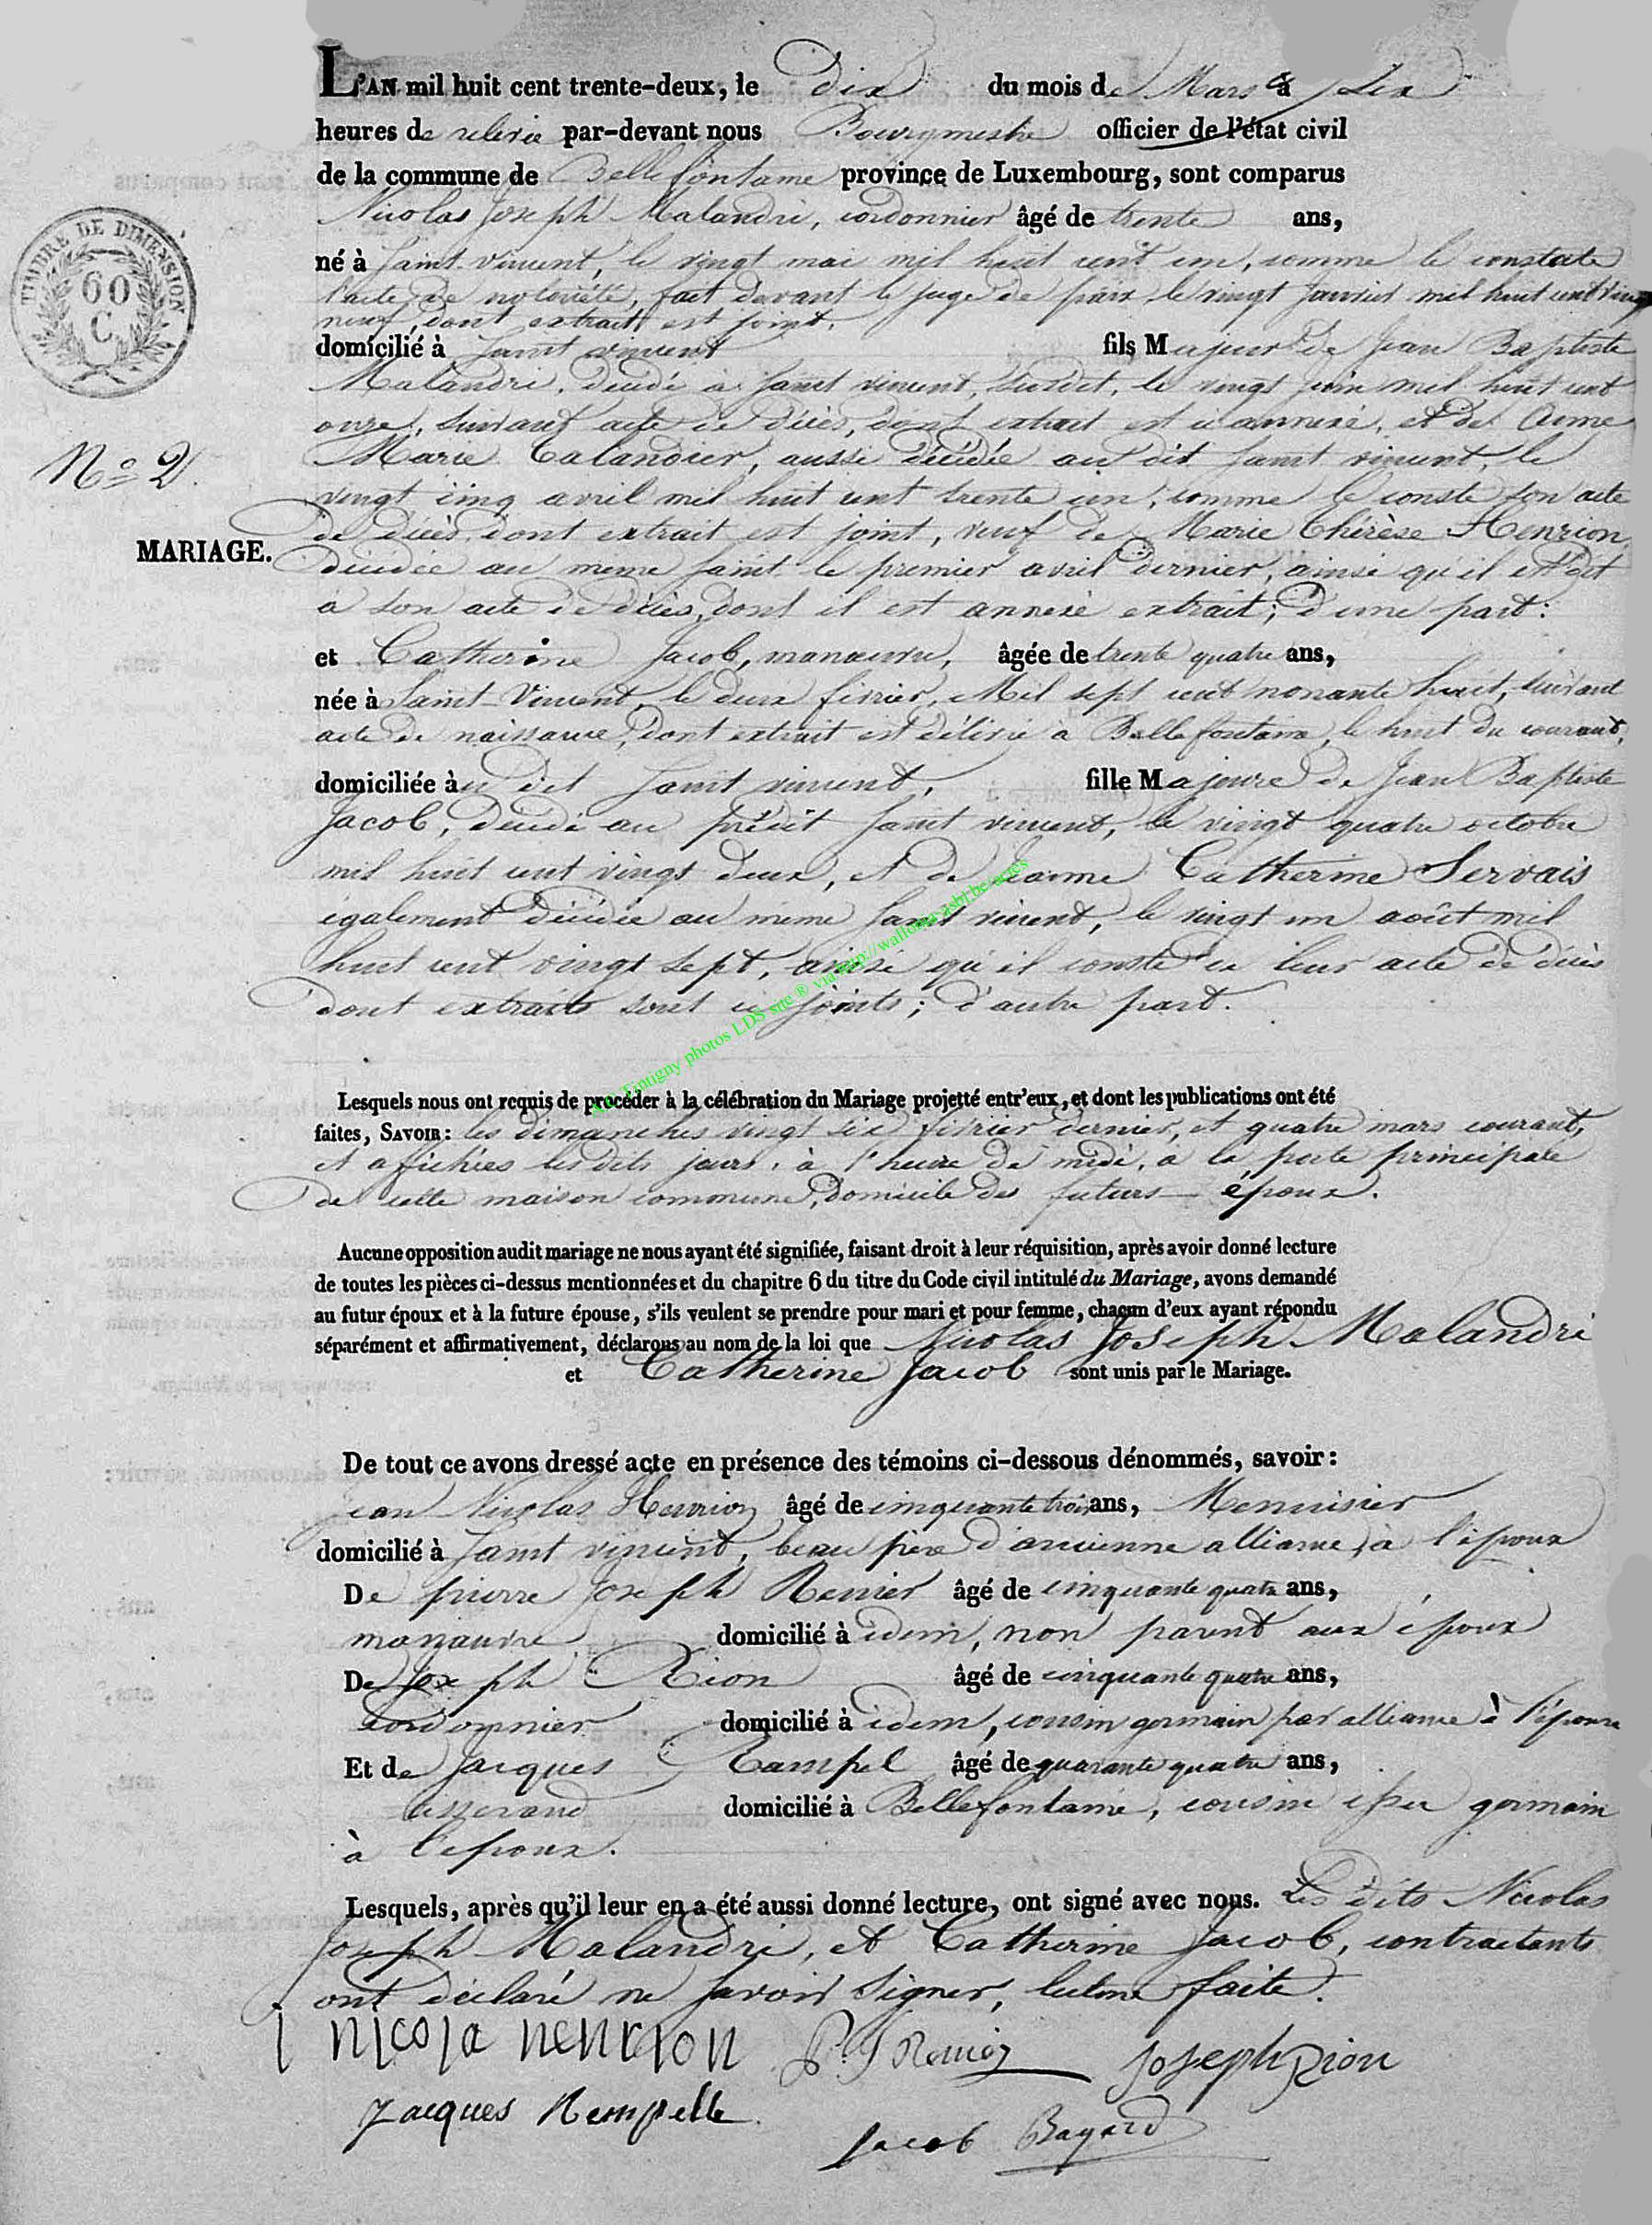 L'AN mil huit cent trente-deux, le dix du mois de Mars à six
heures de relevée par-devant nous Bourgmestre officier de l'état civil
de la commune de Bellefontaine province de Luxembourg, sont comparus
Nicolas Joseph Malandri, cordonnier âgé de trente ans,
né à Saint Vincent, le vingt mai mil huit cent un, comme le constate
l'acte de notoriété, fait devant le juge de paix le vingt janvier mil huit cent vingt
neuf, dont extrait est joint.
domicilié à Saint vincent fils Majeur de Jean Baptiste
Malandri, décédé à Saint vincent, susdit, le vingt juin mil huit cent
onze, suivant acte de décès, dont extrait est ci annexé, et de Anne
Marie Calandrier, aussi décédée au dit Saint vincent, le
vingt cinq avril mil huit cent trente un, comme le conste son acte
de décès, dont extrait est joint, veuf de Marie Thérèse Henrion,
décédée au meme Saint le premier avril dernier, ainsi qu'il est dit
à son acte de décès, dont il est annexé extrait; d'une part:
N° 2.
MARIAGE.
et Catherine Jacob, manœuvre, âgée de trente quatre ans,
née à Saint Vincent, le deux février, Mil sept cent nonante huit, suivant
acte de naissance, dont extrait est délivré à Bellefontaine, le huit du courant,
domiciliée au dit Saint vincent, fille Majeure de Jean Baptiste
Jacob, décédé au prédit Saint vincent, le vingt quatre octobre
mil huit cent vingt deux, et de Jeanne Catherine Servais
également décédée au même Saint vincent, le vingt un août mil
huit cent vingt sept, ainsi qu'il conste de leur acte de décès
dont extraits sont ci joints; d'autre part.
Tintigny photos LDS site ® via http://wallonia-asbl.be/actes
Lesquels nous ont requis de procéder à la célébration du Mariage projetté entr'eux, et dont les publications ont été
faites, SAVOIR: les dimanches vingt six février dernier, et quatre mars courant,
et affichées lesdits jours, à l'heure de midi, a la porte principale
de cette maison commune, domicile des futurs époux.
Aucune opposition audit mariage ne nous ayant été signifiée, faisant droit à leur réquisition, après avoir donné lecture
de toutes les pièces ci-dessus mentionnées et du chapitre 6 du titre du Code civil intitulé du Mariage, avons demandé
au futur époux et à la future épouse, s'ils veulent se prendre pour mari et pour femme, chacun d'eux ayant répondu
séparément et affirmativement, déclarons au nom de la loi que Nicolas Joseph Malandri
et Catherine Jacob sont unis par le Mariage.
De tout ce avons dressé acte en présence des témoins ci-dessous dénommés, savoir:
Jean Nicolas Henrion âgé de cinquante trois ans, Menuisier
domicilié à Saint vincent, beau père d'ancienne alliance, à l'époux
De pierre Joseph Renier âgé de cinquante quatre ans,
manœuvre domicilié à idem, non parent aux époux
De Joseph Rion âgé de cinquante quatre ans,
cordonnier domicilié à idem, cousin germain par alliance à l'épouse
Et de Jacques Rampel âgé de quarante quatre ans,
tisserand domicilié à Bellefontaine, cousin issu germain
à l'époux.
Lesquels, après qu'il leur en a été aussi donné lecture, ont signé avec nous. Les dits Nicolas
Joseph Malandri, et Catherine Jacob, contractants
ont déclaré ne savoir signer, lecture faite.
J nicola henrion P. J Renier Joseph Rion
Jacques Rempelle
Jacob Bayard
TIMBRE DE DIMENSION
60
C.